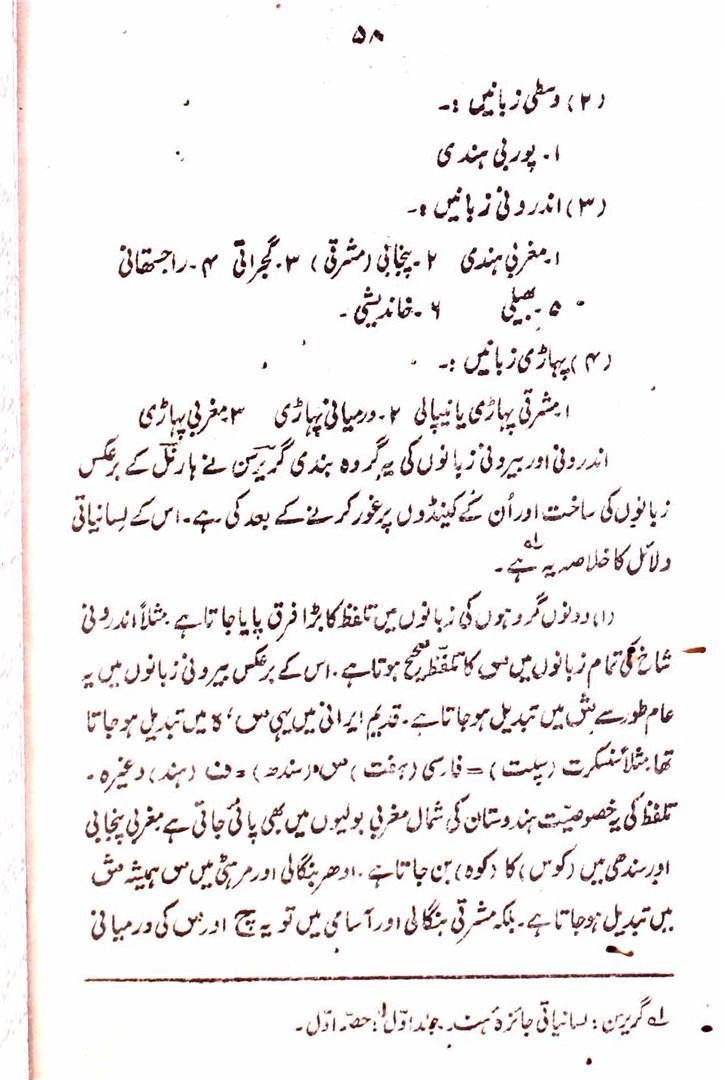 ۵۸
(۲) وسطی زبانیں :۔
۱۔ پوربی ہندی
(۳) اندرونی زبانیں :۔
۱۔ مغربی ہندی ۲۔ پنجابی (مشرقی) ۳۔ گجراتی ۴۔ راجستھانی
۵۔ بھیلی ۶۔ خاندیشی۔
(۴) پہاڑی زبانیں :۔
۱۔ مشرقی پہاڑی یا نیپالی ۲۔ درمیانی پہاڑی ۳۔ مغربی پہاڑی
اندرونی اور بیرونی زبانوں کی یہ گروہ بندی گریرسن نے ہارنلی کے برعکس
زبانوں کی ساخت اور اُن کے کینڈوں پر غور کرنے کے بعد کی ہے۔ اس کے لسانیاتی
دلائل کا خلاصہ یہ ہے۔ لہ
(۱) دونوں گروہوں کی زبانوں میں تلفظ کا بڑا فرق پایا جاتا ہے مثلاً اندرونی
شاخ کی تمام زبانوں میں س کا تلفظ صحیح ہوتا ہے۔ اس کے برعکس بیرونی زبانوں میں یہ
عام طور سے ش میں تبدیل ہو جاتا ہے۔ قدیم ایرانی میں یہی س، ہ میں تبدیل ہو جاتا
تھا مثلاً سنسکرت (سپت) = فارسی (ہفت) س (سندھ) = ف (ہند) وغیرہ۔
تلفظ کی یہ خصوصیت ہندوستان کی شمال مغربی بولیوں میں بھی پائی جاتی ہے مغربی پنجابی
اور سندھی میں (کوس) کا (کوہ) بن جاتا ہے۔ ادھر بنگالی اور مرہٹی میں س ہمیشہ ش
میں تبدیل ہو جاتا ہے۔ بلکہ مشرقی بنگالی اور آسامی میں تو یہ چ اور س کی درمیانی
لہ گریرسن: لسانیاتی جائزہ ہند۔ جلد اوّل: حصہ اوّل۔